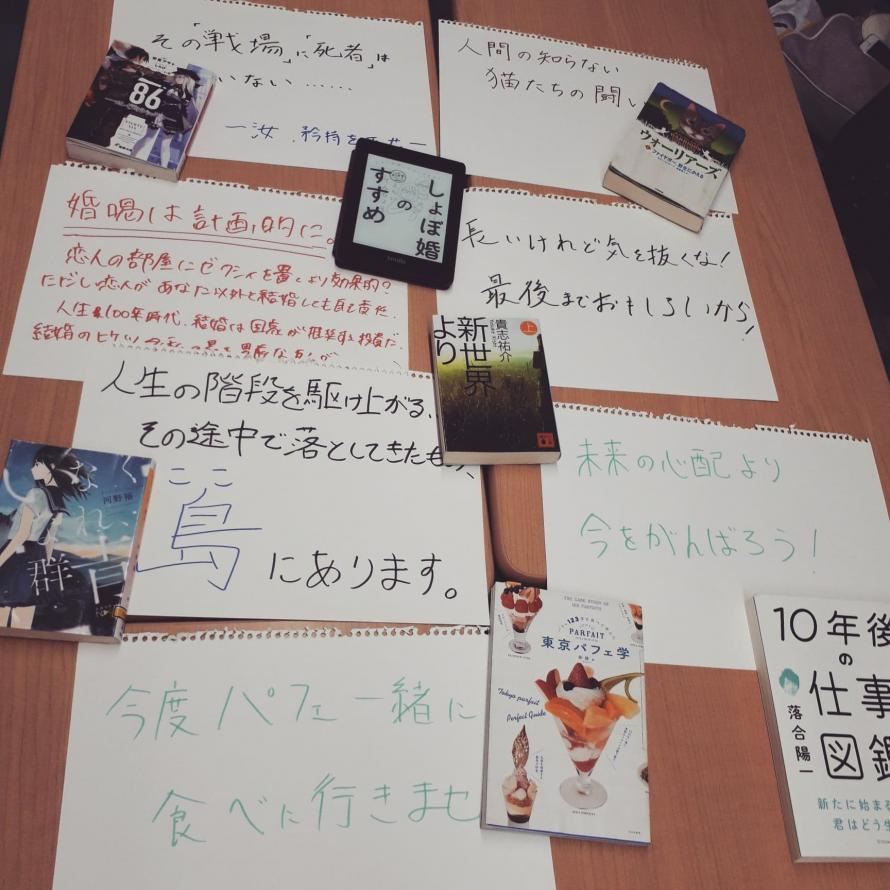 その「戦場」に「死者」は
いない……
86
人間の知らない
猫たちの闘い
ウォーリアーズ
婚喝は計画的に。
恋人の部屋にゼクシィを置くより効果的?
ただし恋人があなた以外と結婚しても自己責任。
人生100年時代、結婚は国家が推奨する投資だ。
結婚のヒケツ
しょぼ婚
の
すすめ
kindle
長いけれど気を抜くな!
最後までおもしろいから!
上
貴志祐介
新世界
より
人生の階段を駆け上がる、
その途中で落としてきたもの、
ここ
島
にあります。
河野裕
いなくなれ、
群青
未来の心配より
今をがんばろう!
今度パフェ一緒に
食べに行きませ
PARFAIT
東京パフェ学
Tokyo parfait
Perfect Guide
10年後
の
仕事
図鑑
落合陽一
新たに始まる
君はどう生